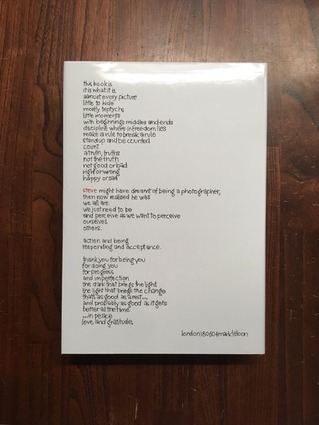 this book is
it is what it is
almost every picture
little to hide
mostly triptychs
little moments
with beginnings middles and ends
discipline where in freedom lies
make a rule to break a rule
stand up and be counted
count
a truth, truths
not the truth
not good or bad
right or wrong
happy or sad
steve might have dreamt of being a photographer,
then now realised he was
we all are.
we just need to be
and perceive as we want to perceive
ourselves
others.
action and being
responding and acceptance.
thank you for being you
for doing you
for progress
and imperfection
the dark that brings the light
the light that brings the change
that's as good as a rest....
and probably as good as it gets
better all the time
....in peace
love and gratitude.
london